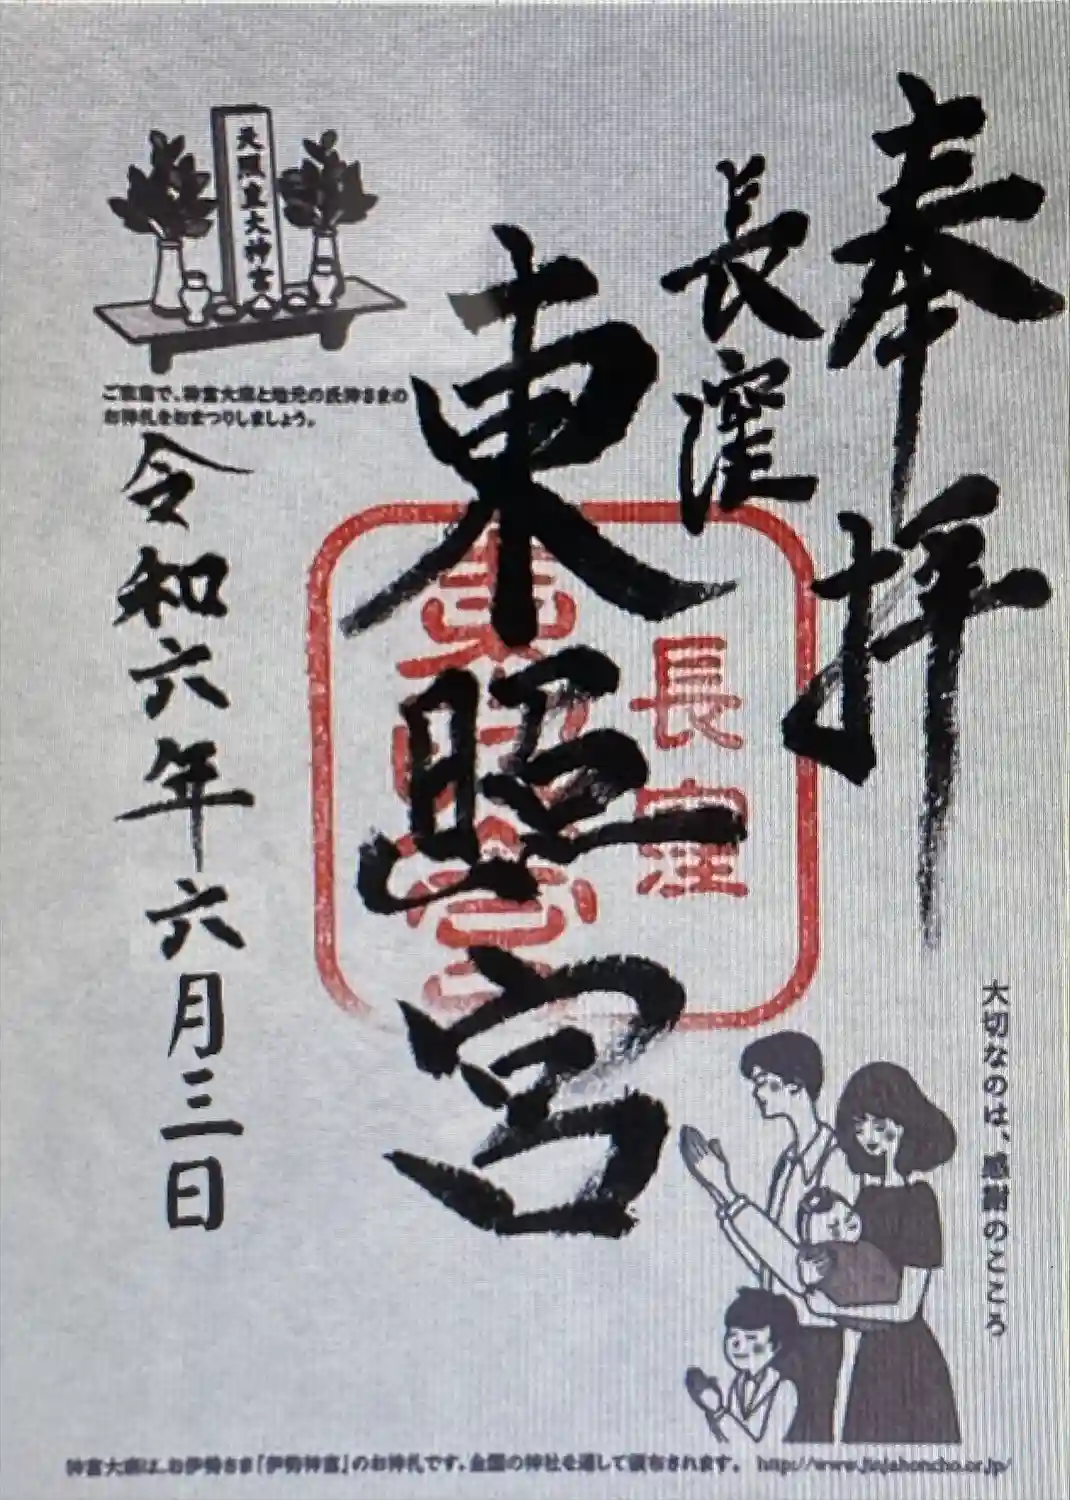 奉拝
長窪
東照宮
長窪
東照宮
天照皇大神宮
ご家庭で、神宮大麻と地元の氏神さまの
お神札をおまつりしましょう。
令和六年六月三日
大切なのは、感謝のこころ
神宮大麻は、お伊勢さま「伊勢神宮」のお神札です。全国の神社を通して頒布されます。 http://www.jinjahoncho.or.jp/